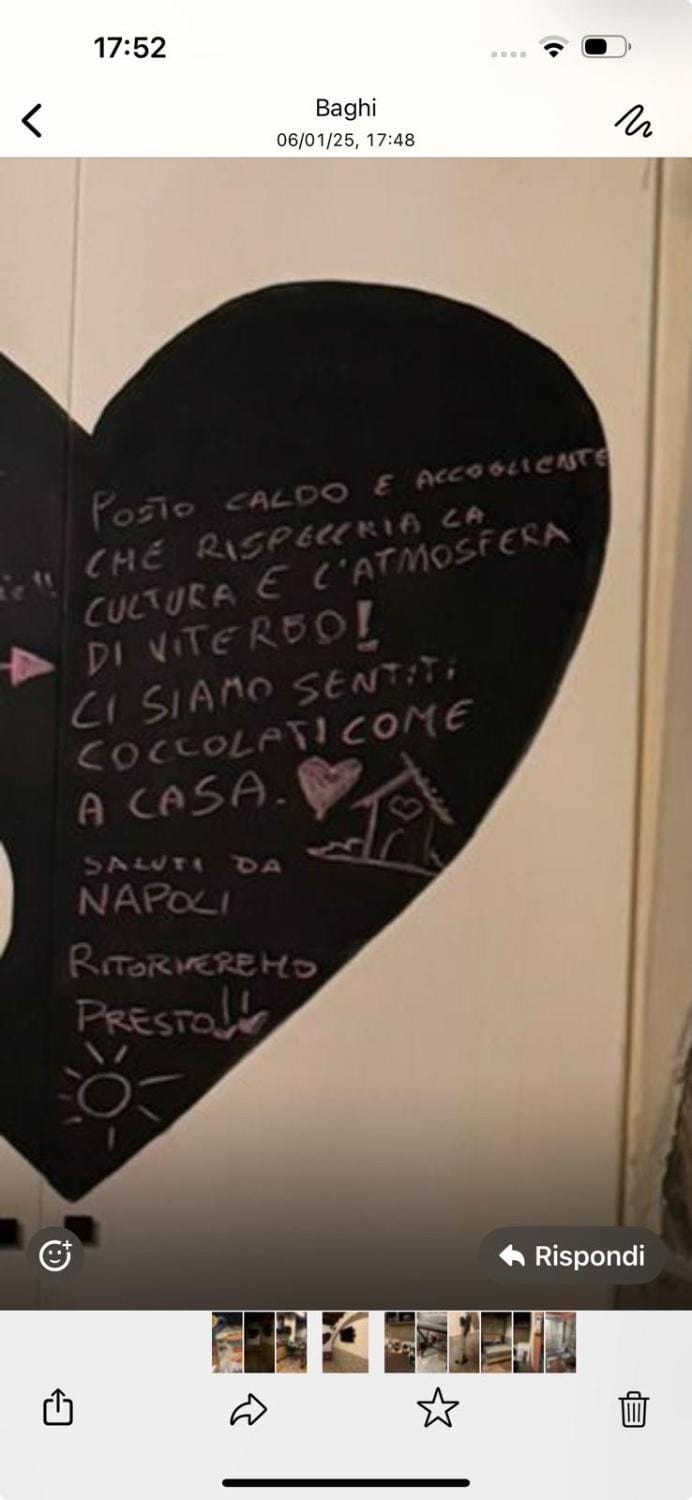 17:52
Baghi
06/01/25, 17:48
POSTO CALDO E ACCOGLIENTE
CHE RISPECCHIA LA
CULTURA E L'ATMOSFERA
DI VITERBO!
CI SIAMO SENTITI
COCCOLATI COME
A CASA.
SALUTI DA
NAPOLI
RITORNEREMO
PRESTO!!
Rispondi